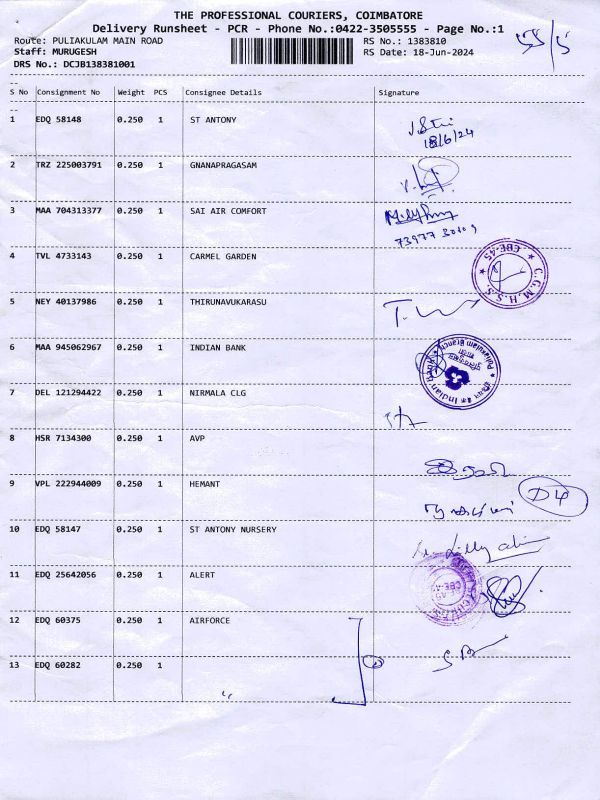 THE PROFESSIONAL COURIERS, COIMBATORE
Delivery Runsheet - PCR - Phone No.:0422-3505555 - Page No.:1
Route: PULIAKULAM MAIN ROAD RS No.: 1383810
Staff: MURUGESH RS Date: 18-Jun-2024
DRS No.: DCJB138381001
S No Consignment No Weight PCS Consignee Details Signature
1 EDQ 58148 0.250 1 ST ANTONY
18/6/24
2 TRZ 225003791 0.250 1 GNANAPRAGASAM
3 MAA 704313377 0.250 1 SAI AIR COMFORT
4 TVL 4733143 0.250 1 CARMEL GARDEN
C.G.M.H.S.S. ★ CBE-45 ★
5 NEY 40137986 0.250 1 THIRUNAVUKARASU
6 MAA 945062967 0.250 1 INDIAN BANK
Puliakulam Branch
Indian
7 DEL 121294422 0.250 1 NIRMALA CLG
8 HSR 7134300 0.250 1 AVP
9 VPL 222944009 0.250 1 HEMANT
D4
10 EDQ 58147 0.250 1 ST ANTONY NURSERY
11 EDQ 25642056 0.250 1 ALERT
12 EDQ 60375 0.250 1 AIRFORCE
13 EDQ 60282 0.250 1
"